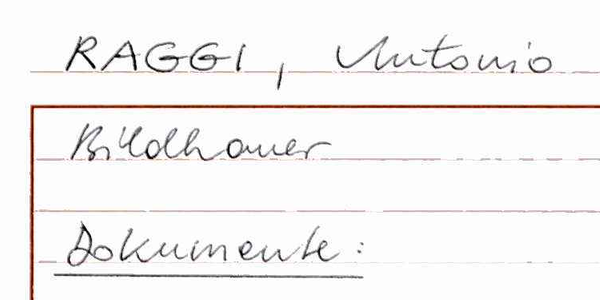 RAGGI, Antonio
Bildhauer
Dokumente: